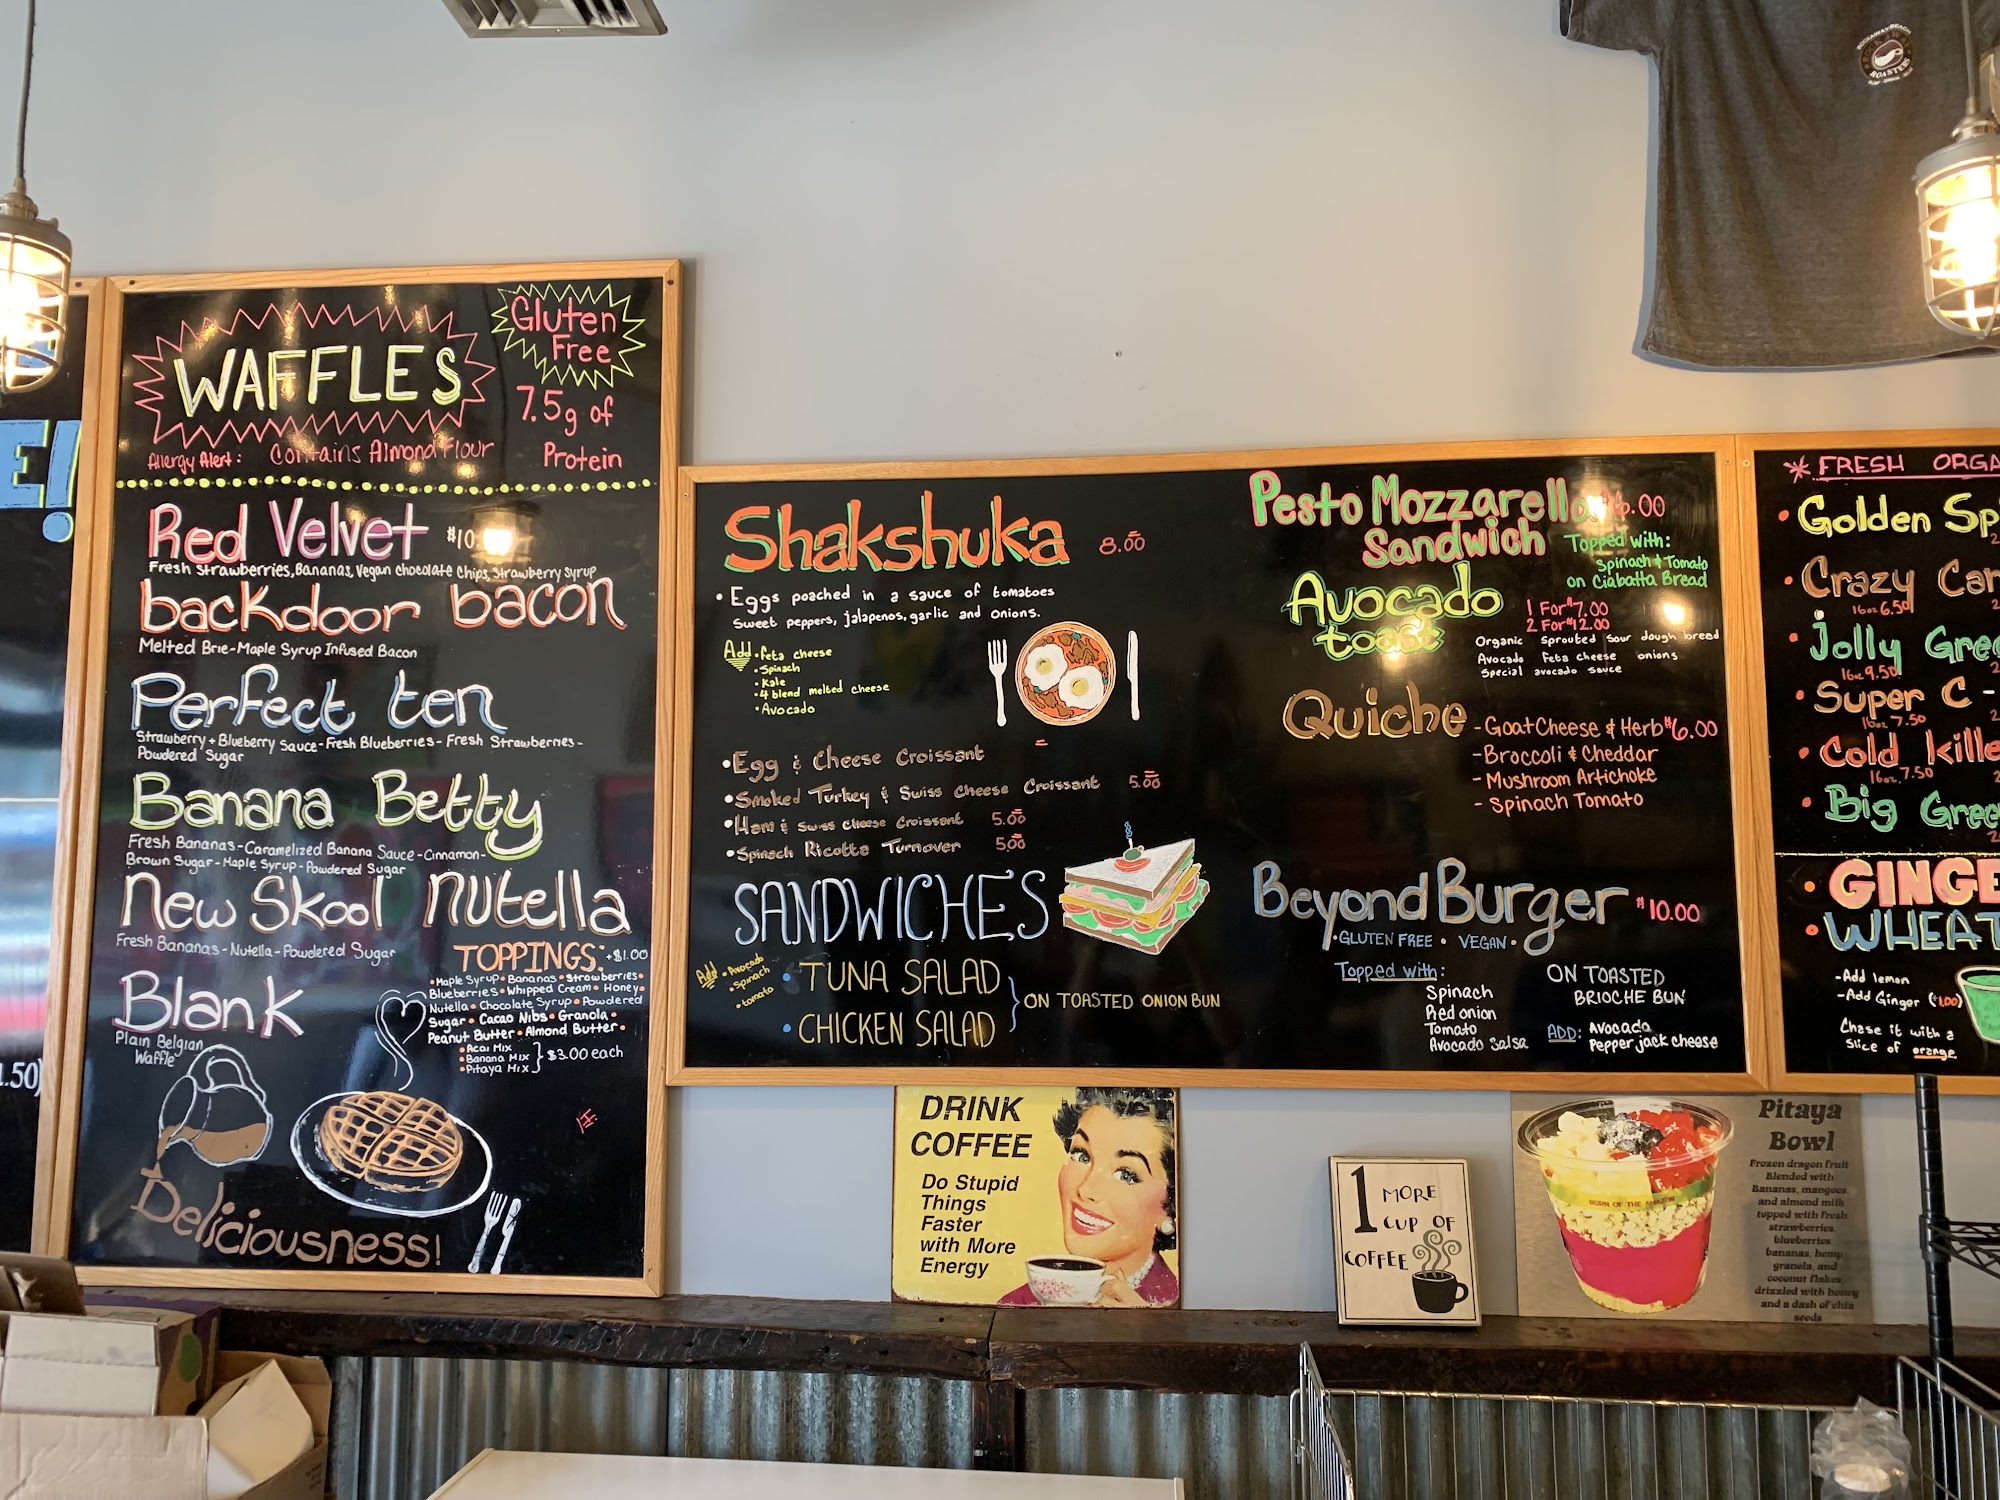 E!
.50)
WAFFLES
Gluten
Free
7.5g of
Protein
Allergy Alert: Contains Almond Flour
Red Velvet $10
Fresh Strawberries, Bananas, Vegan chocolate chips, Strawberry syrup
backdoor bacon
Melted Brie-Maple Syrup Infused Bacon
Perfect ten
Strawberry + Blueberry Sauce - Fresh Blueberries - Fresh Strawberries -
Powdered Sugar
Banana Betty
Fresh Bananas - Caramelized Banana Sauce - Cinnamon -
Brown Sugar - Maple Syrup - Powdered Sugar
New Skool Nutella
Fresh Bananas - Nutella - Powdered Sugar
Blank
Plain Belgian
Waffle
TOPPINGS: +$1.00
• Maple Syrup • Bananas • Strawberries •
Blueberries • Whipped Cream • Honey •
Nutella • Chocolate Syrup • Powdered
Sugar • Cacao Nibs • Granola •
Peanut Butter • Almond Butter •
• Acai Mix
• Banana Mix
• Pitaya Mix
$3.00 each
Deliciousness!
Shakshuka 8.00
• Eggs poached in a sauce of tomatoes
Sweet peppers, jalapenos, garlic and onions.
Add • feta cheese
• Spinach
• Kale
• 4 blend melted cheese
• Avocado
• Egg & Cheese Croissant
• Smoked Turkey & Swiss Cheese Croissant 5.00
• Ham & Swiss Cheese Croissant 5.00
• Spinach Ricotta Turnover 5.00
SANDWICHES
Add • Avocado
• Spinach
• tomato
• TUNA SALAD
• CHICKEN SALAD
ON TOASTED ONION BUN
Pesto Mozzarella $6.00
Sandwich
Topped with:
Spinach & Tomato
on Ciabatta Bread
Avocado
toast
1 For $7.00
2 For $12.00
Organic Sprouted Sour dough breed
Avocado Feta cheese onions
Special avocado sauce
Quiche
- Goat Cheese & Herb $6.00
- Broccoli & Cheddar
- Mushroom Artichoke
- Spinach Tomato
Beyond Burger $10.00
• GLUTEN FREE • VEGAN •
Topped with:
Spinach
Red onion
Tomato
Avocado Salsa
ON TOASTED
BRIOCHE BUN
ADD: Avocado
Pepper jack cheese
* FRESH ORGA
• Golden Sp
• Crazy Car
16oz 6.50
• Jolly Gree
16oz 9.50
• Super C -
16oz 7.50
• Cold Kille
16oz 7.50
• Big Gree
• GINGE
• WHEAT
- Add lemon
- Add Ginger (1.00)
Chase it with a
Slice of orange
ROCKAWAY BEACH
ROASTERS
DRINK
COFFEE
Do Stupid
Things
Faster
with More
Energy
1 MORE
CUP OF
COFFEE
Pitaya
Bowl
Frozen dragon fruit
Blended with
Bananas, mangoes,
and almond milk
topped with fresh
strawberries,
blueberries,
bananas, hemp
granola, and
coconut flakes
drizzled with honey
and a dash of chia
seeds
BORN OF THE AMAZON